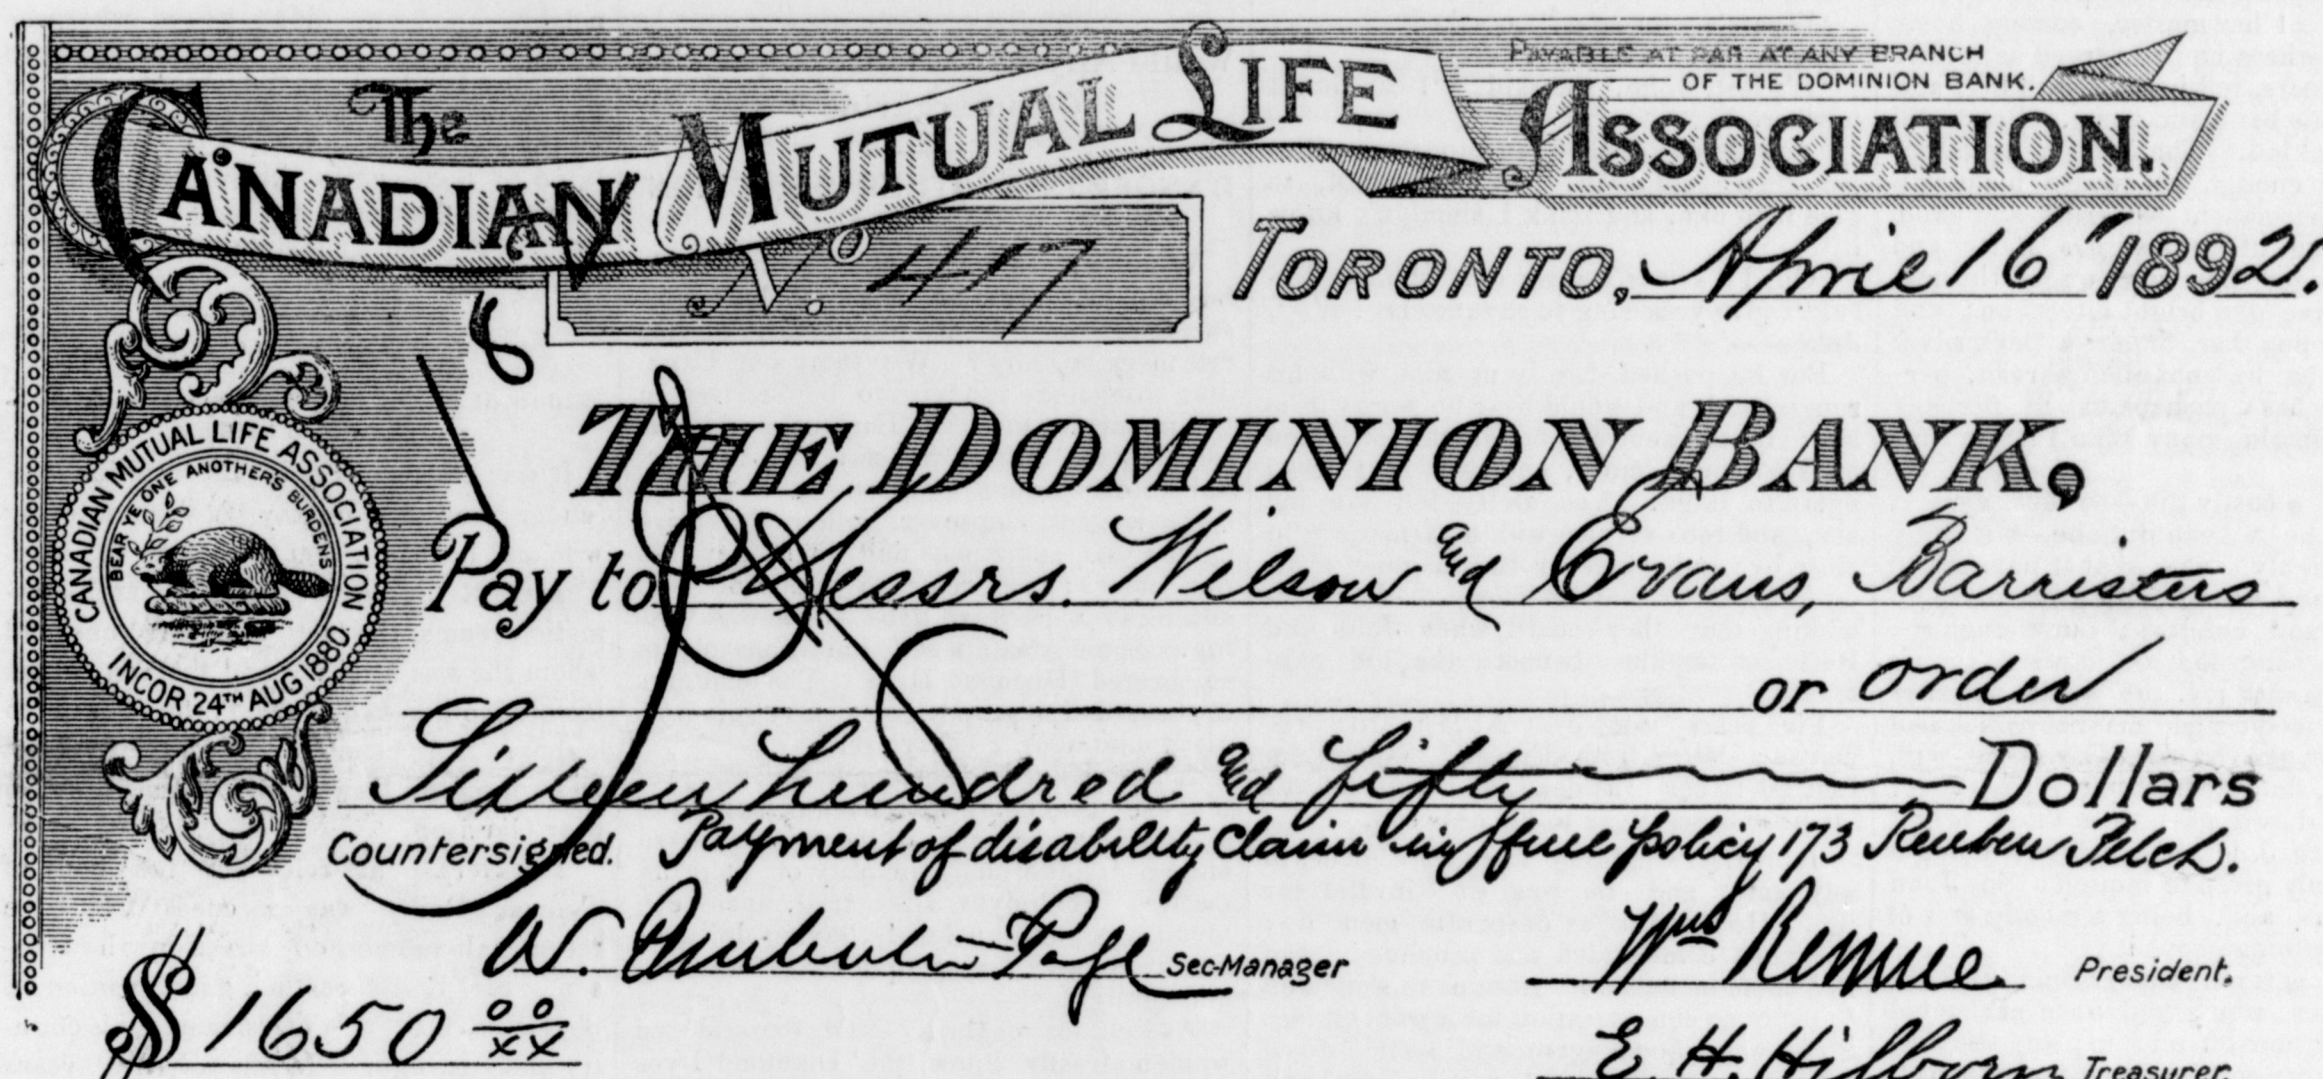 PAYABLE AT PAR AT ANY BRANCH
OF THE DOMINION BANK.
The
CANADIAN MUTUAL LIFE ASSOCIATION.
No. 417
TORONTO, April 16" 1892.
CANADIAN MUTUAL LIFE ASSOCIATION
BEAR YE ONE ANOTHERS BURDENS
INCOR 24TH AUG 1880
THE DOMINION BANK,
Pay to Messrs. Wilson and Evans, Barristers
or order
Sixteen hundred and fifty Dollars
Countersigned. Payment of disability claim in full policy 173 Reuben Felch.
W. Pemberton Page Sec-Manager
Wm Rennie President.
$1650 00/xx
E. H. Hilborn Treasurer